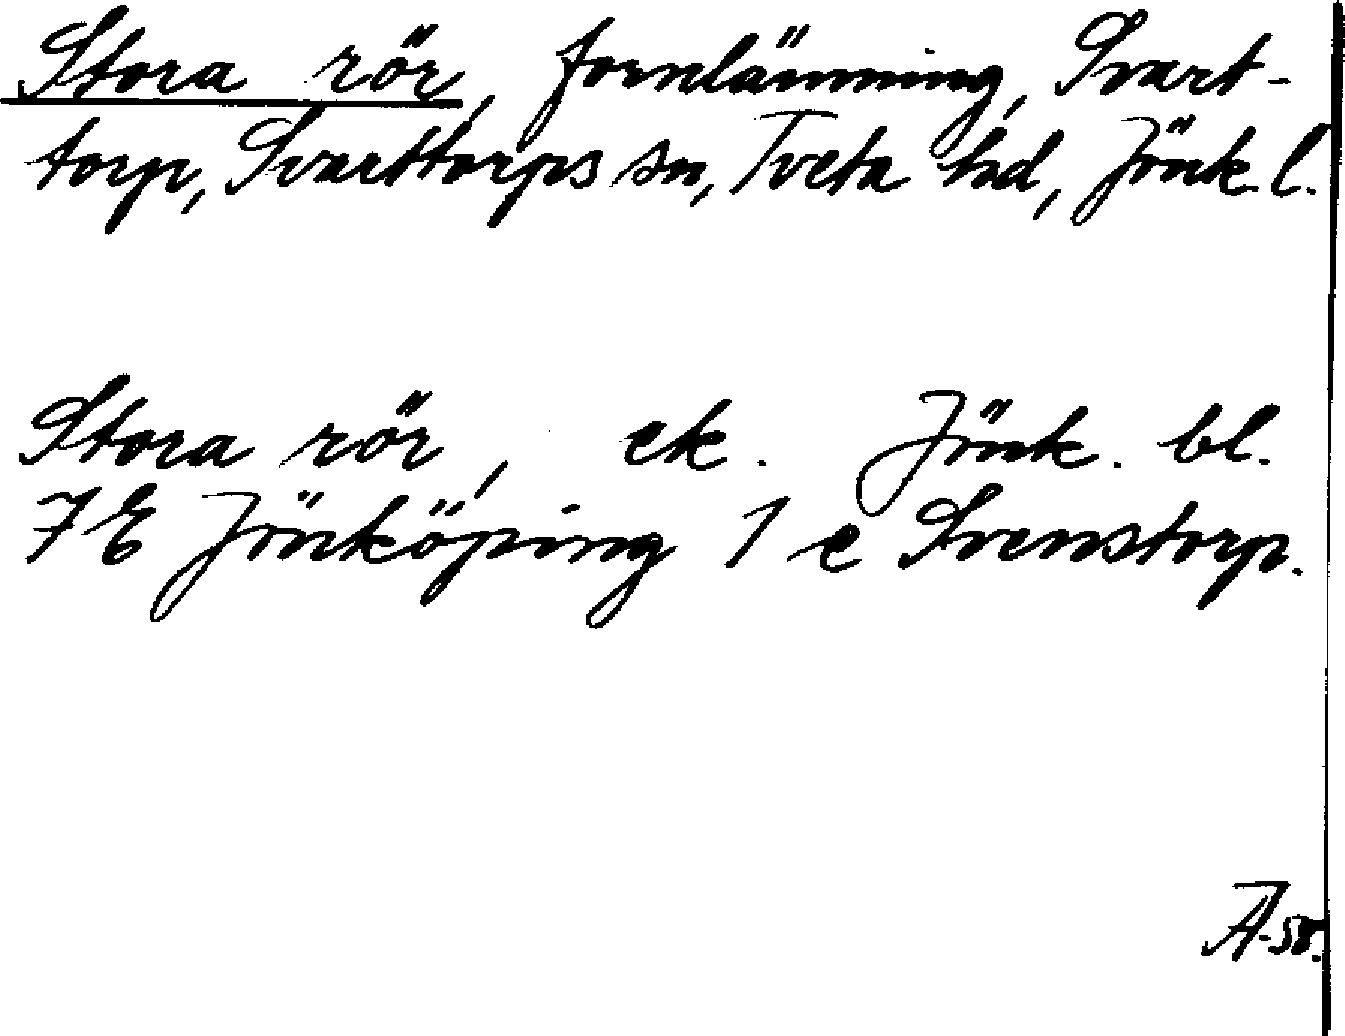 Stora rör, fornlämning, Svart-
torp, Svarttorps sn, Tveta hd, Jönk. l.
Stora rör, ek. Jönk. bl.
7 E Jönköping 1 e Svenstorp.